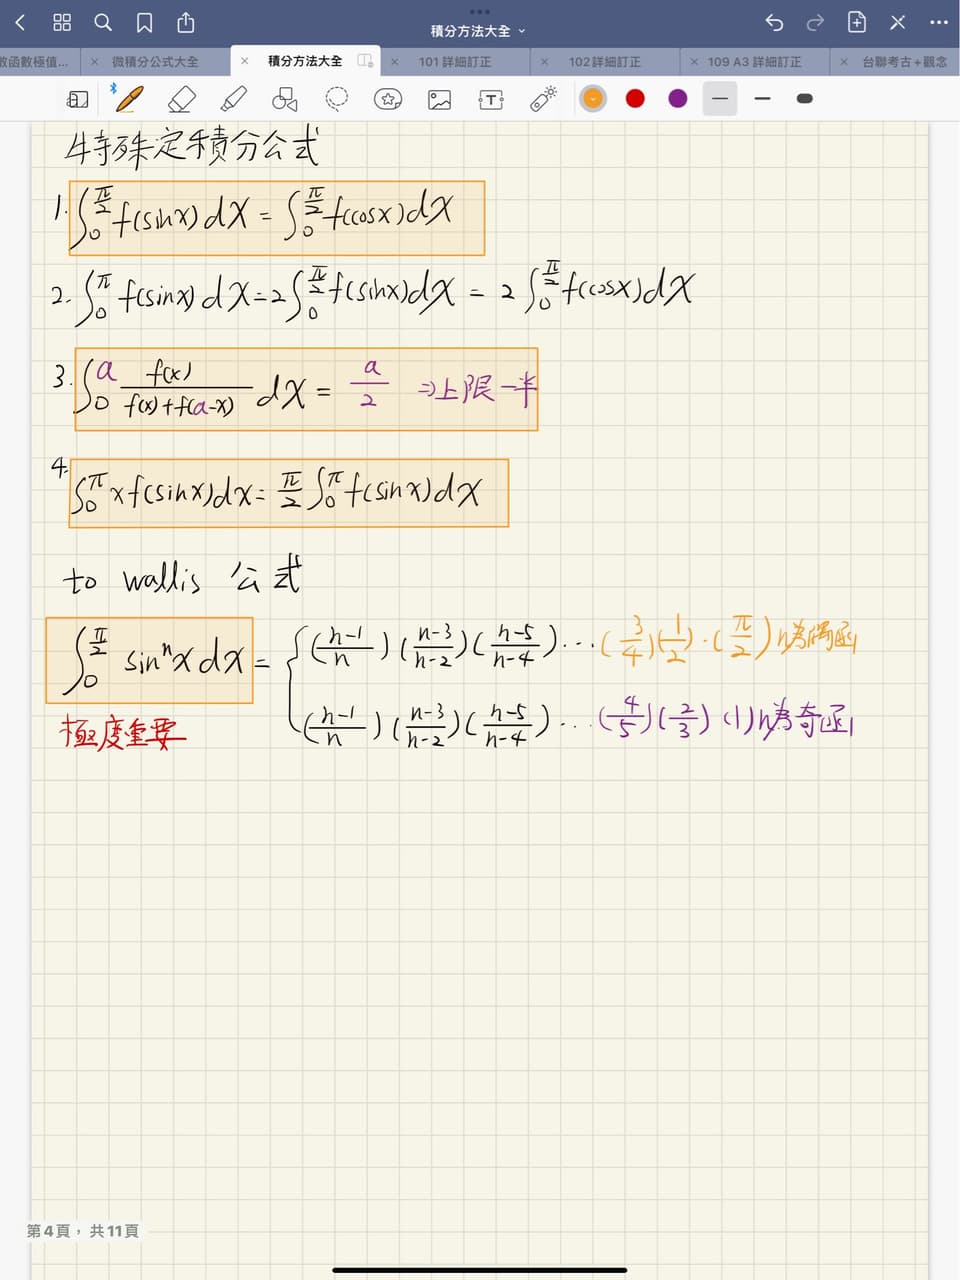 積分方法大全
敗函數極值...
微積分公式大全
積分方法大全
101 詳細訂正
102詳細訂正
109 A3 詳細訂正
台聯考古+觀念
特殊定積分公式
1. ∫₀^(π/2) f(sinx)dx = ∫₀^(π/2) f(cosx)dx
2. ∫₀^π f(sinx)dx = 2∫₀^(π/2) f(sinx)dx = 2∫₀^(π/2) f(cosx)dx
3. ∫₀^a f(x)/(f(x)+f(a-x)) dx = a/2 ⇒上限一半
4. ∫₀^π xf(sinx)dx = π/2 ∫₀^π f(sinx)dx
to wallis 公式
∫₀^(π/2) sinⁿx dx = { ((n-1)/n)((n-3)/(n-2))((n-5)/(n-4))⋯(3/4)(1/2)·(π/2) n為偶函
((n-1)/n)((n-3)/(n-2))((n-5)/(n-4))⋯(4/5)(2/3)·(1) n為奇函
極度重要
第4頁，共11頁